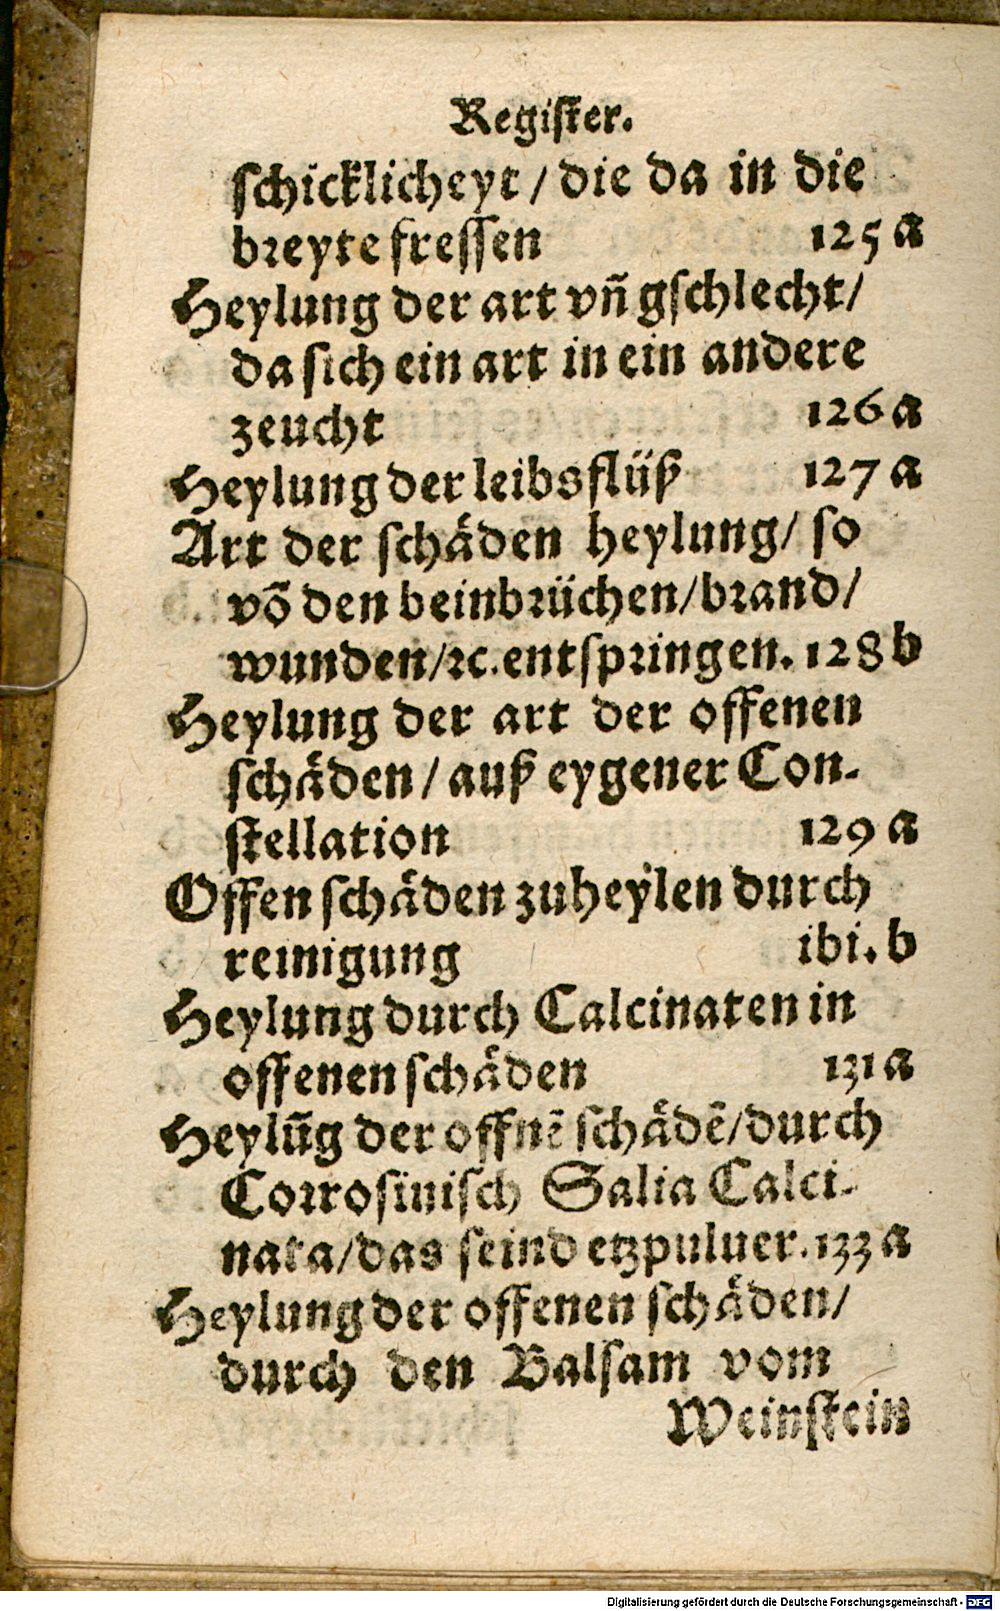 Regiſter.
ſchicklicheyt / die da in die
breyte freſſen 125 a
Heylung der art vñ gſchlecht /
da ſich ein art in ein andere
zeucht 126 a
Heylung der leibsflüß 127 a
Art der ſchäden heylung / ſo
võ den beinbrüchen / brand /
wunden / ꝛc. entſpringen. 128 b
Heylung der art der offenen
ſchäden / auß eygener Con-
ſtellation 129 a
Offen ſchäden zuheylen durch
reinigung ibi. b
Heylung durch Calcinaten in
offenen ſchäden 131 a
Heylũg der offnẽ ſchädẽ / durch
Corroſiuiſch Salia Calci-
nata / das ſeind etzpuluer. 133 a
Heylung der offenen ſchäden /
durch den Balſam vom
Weinſtein
Digitalisierung gefördert durch die Deutsche Forschungsgemeinschaft - DFG